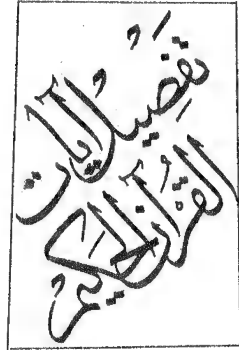 تفصيل آيات
القرآن الحكيم